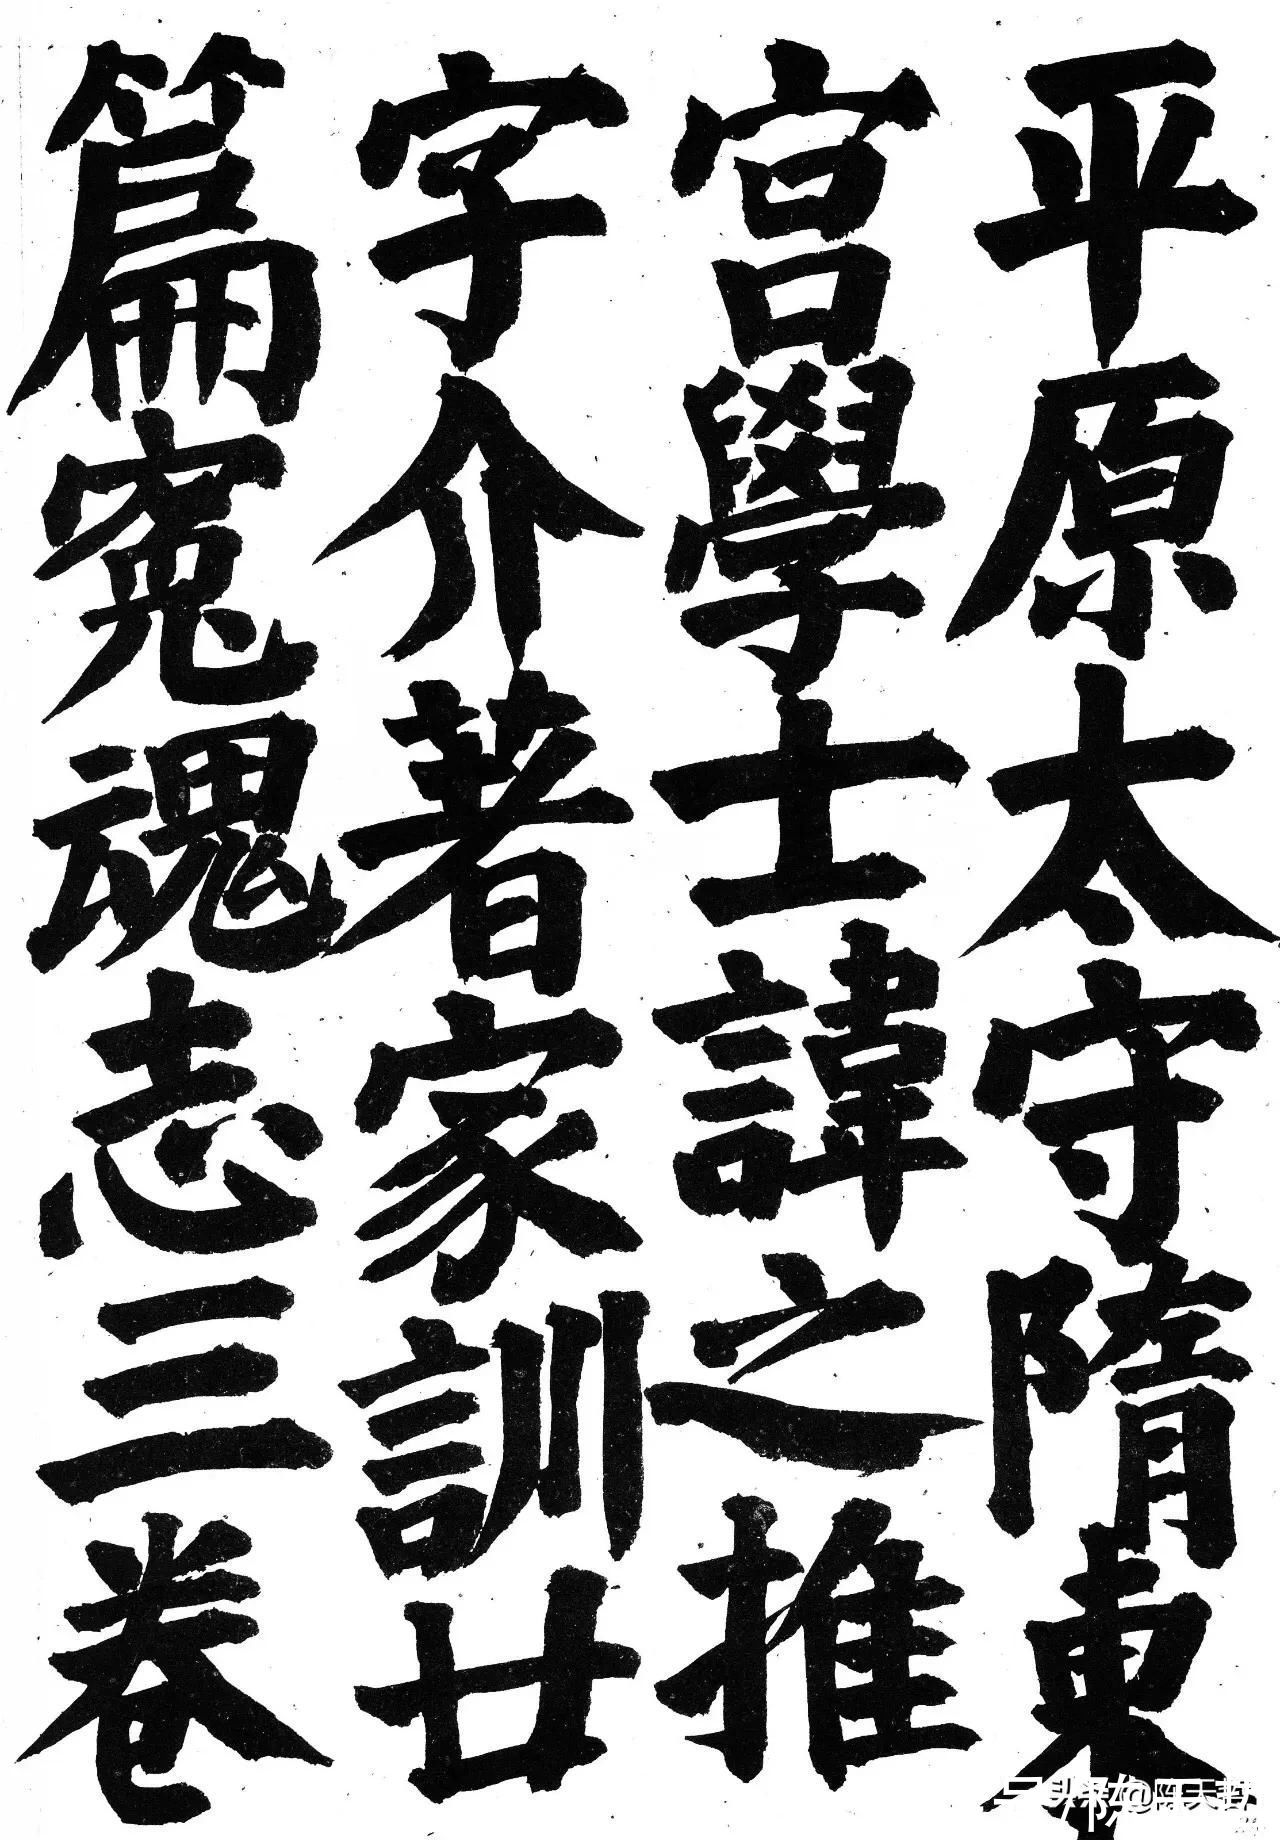 平原太守隋東
宮學士諱之推
字介著家訓廿
篇寃魂志三卷